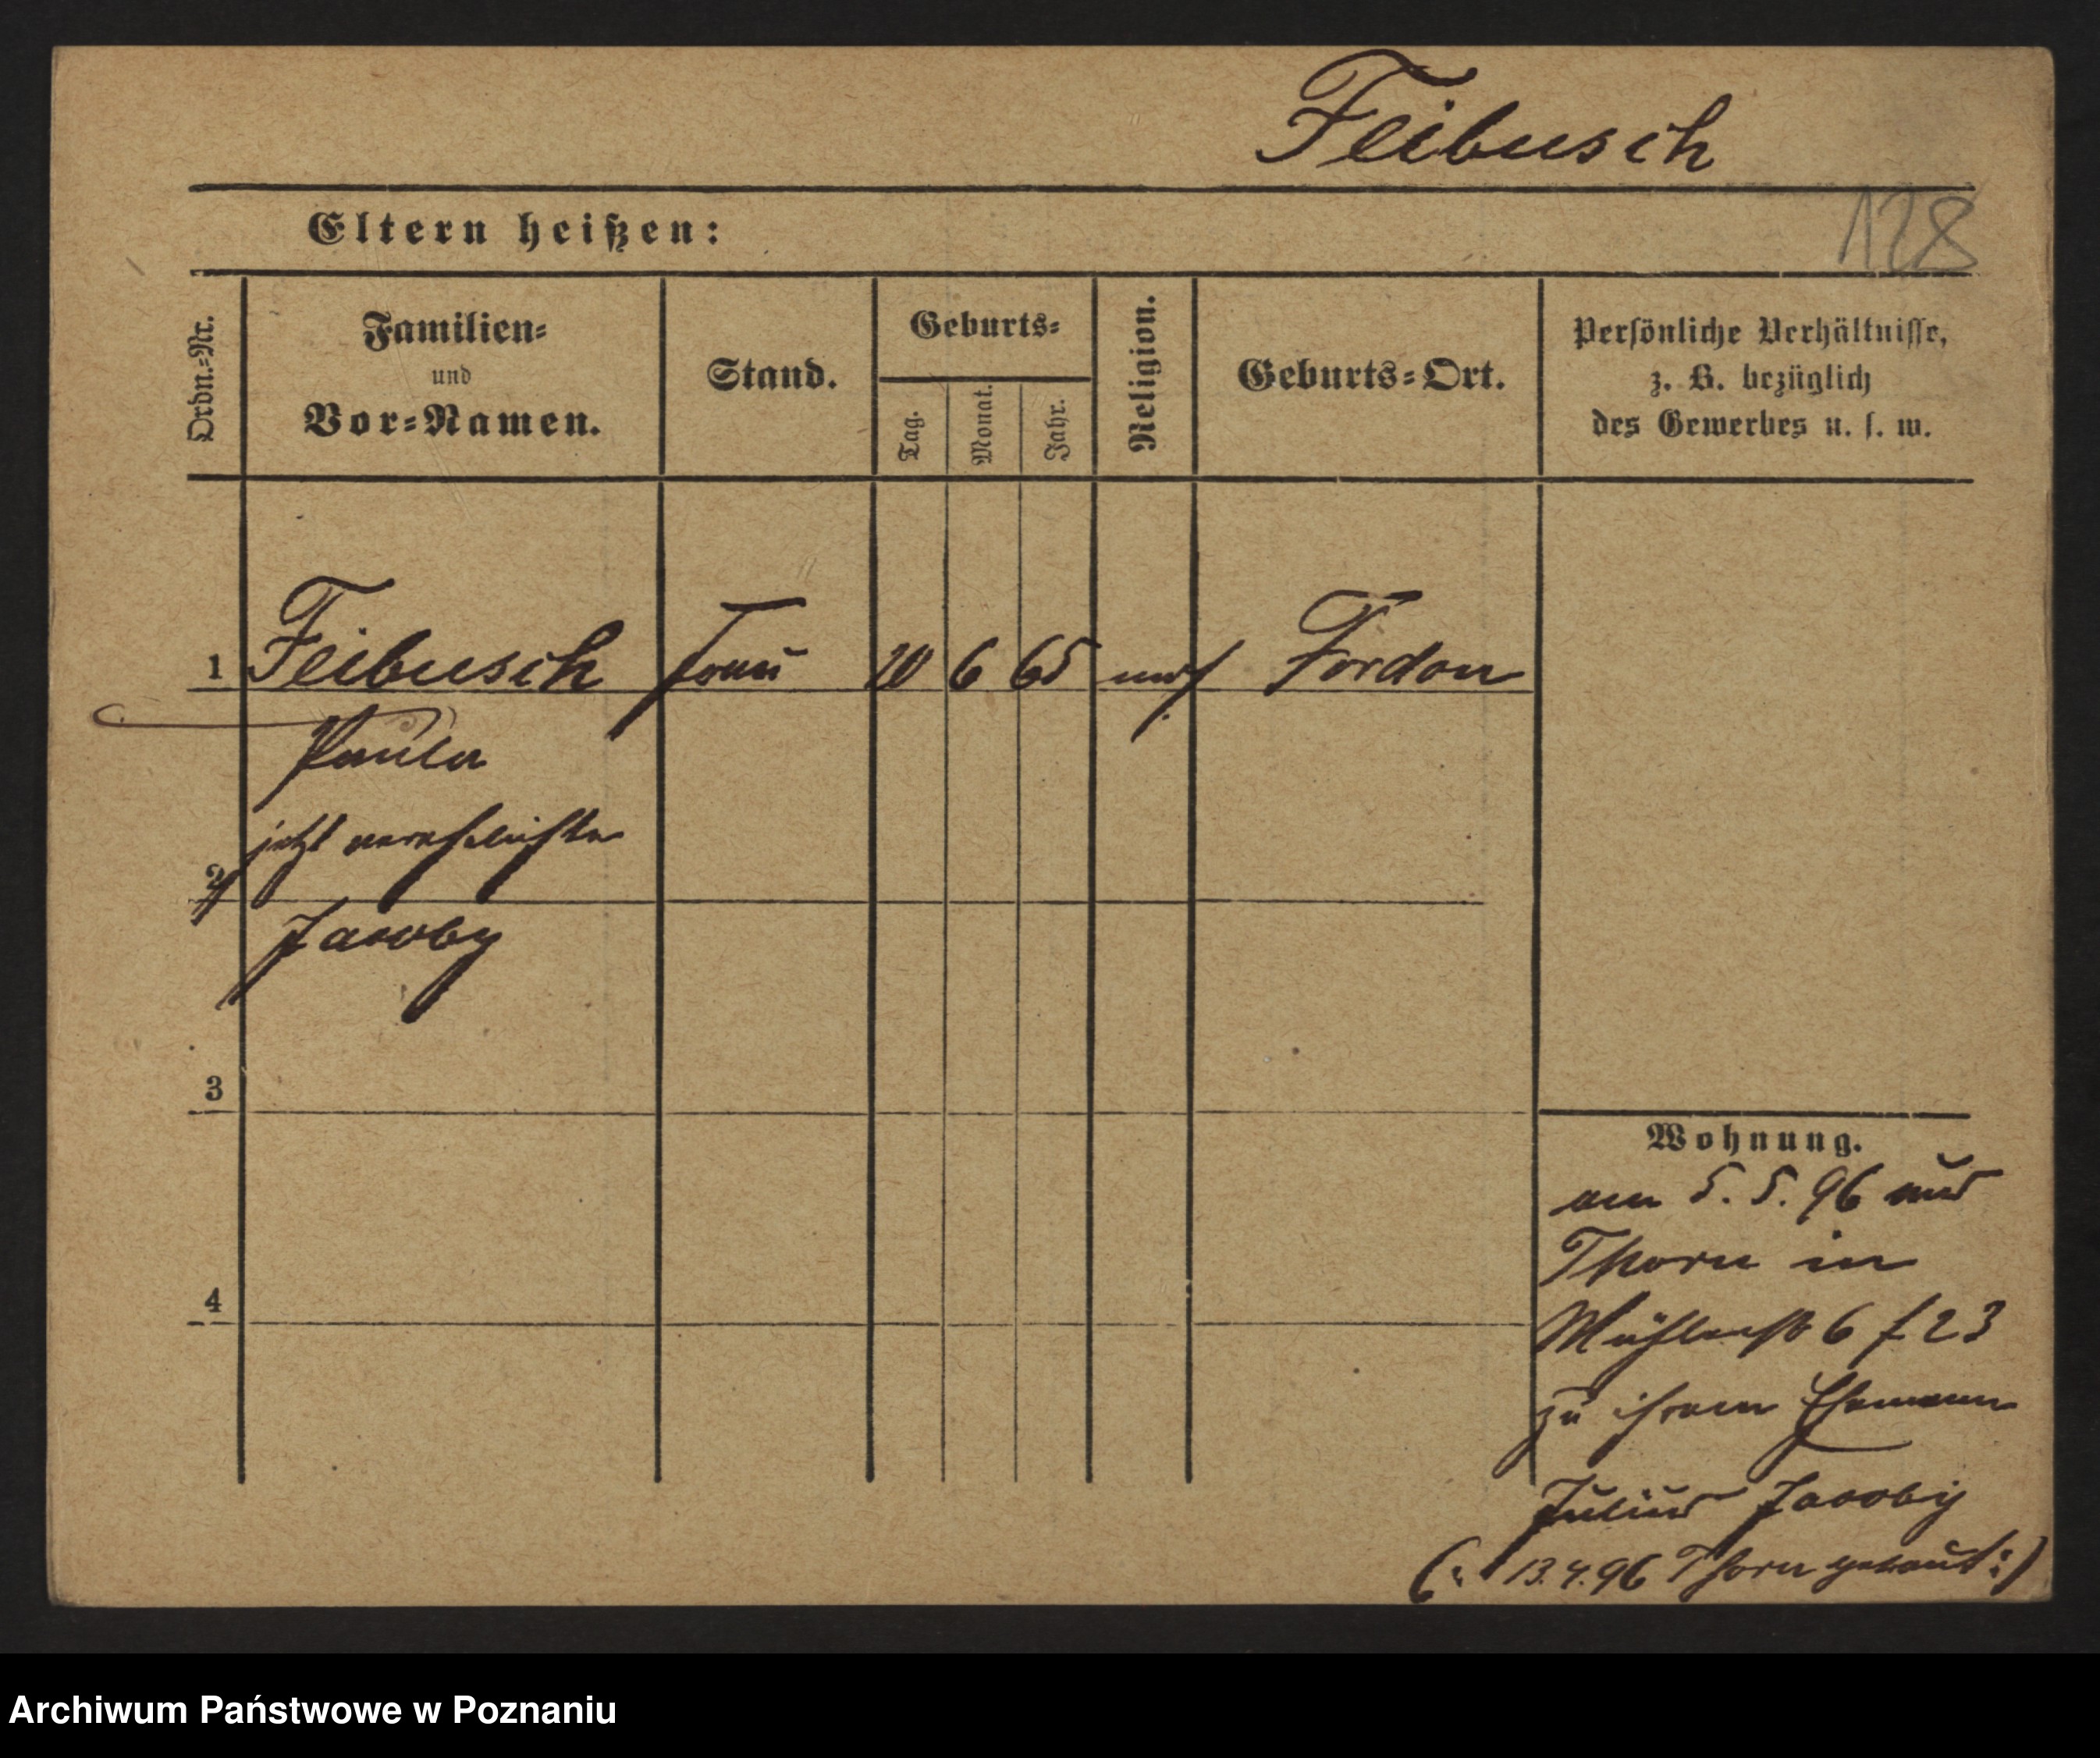 Feibusch
128
Eltern heißen:
Ordn.-Nr.
Familien-
und
Vor-Namen.
Stand.
Geburts-
Tag.
Monat.
Jahr.
Religion.
Geburts-Ort.
Persönliche Verhältnisse,
z. B. bezüglich
des Gewerbes u. s. w.
1 Feibusch Frau 10 6 65 mos Fordon
Paula
jetzt verehelichte
2
Jacoby
3
4
Wohnung.
am 5. 5. 96 aus
Thorn in
Mühlenstr 6 f 23
zu ihrem Ehemann
Julius Jacoby
(: 13.4.96 Thorn getraut :)
Archiwum Państwowe w Poznaniu